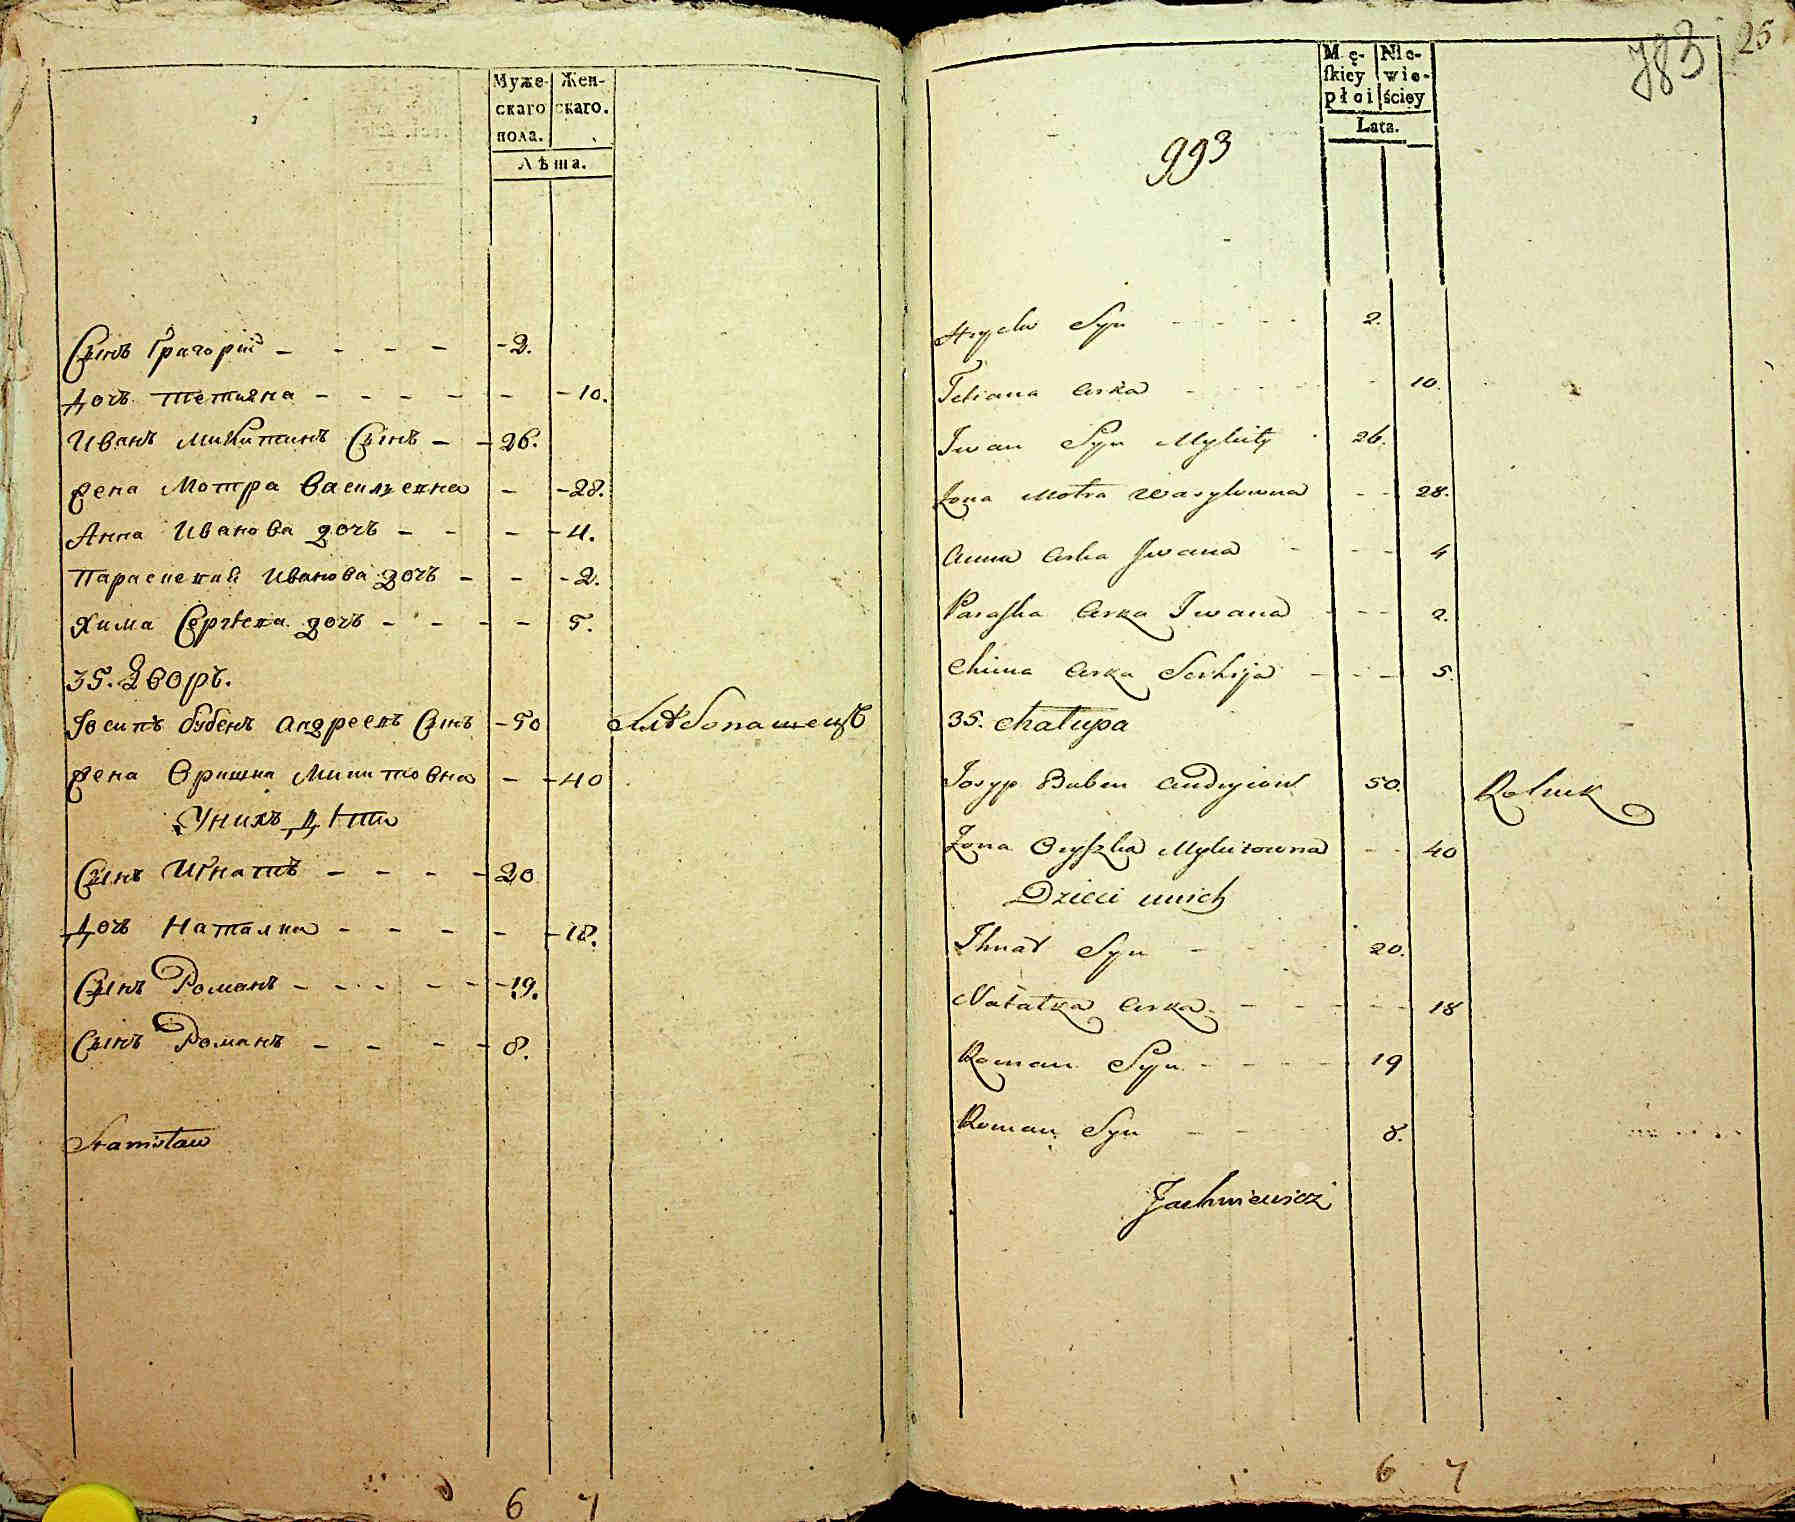 Муже- Жен-
скаго скаго.
пола.
Лѣта.
Сынъ Григорий - - - - - 2.
дочь Тетияна - - - - - - 10.
Иванъ Микитинъ Сынъ - - 26.
жена Мотра Васильевна - - 28.
Анна Иванова дочь - - - - 4.
Параскевия Иванова дочь - - - 2.
Хима Сергѣева дочь - - - - 5.
35. Дворъ.
Иосипъ бубенъ андреевъ Сынъ - 50 хлѣбопашецъ
жена Оришка Микитовна - - 40
Унихъ Дѣти
Сынъ Игнатъ - - - - - 20
дочь Наталка - - - - - - 18.
Сынъ Романъ - - - - - - 19.
Сынъ Романъ - - - - 8.
Stanisław
6 7
783 25
Mę- Nie-
skiey wie-
płci ściey
Lata.
993
Hryćko Syn - - - - 2.
Tetiana Curka - - - - 10.
Iwan Syn Mykity 26.
Żona Motra Wasylowna - - 28.
Anna Curka Iwana - - - 4
Paraska Curka Iwana - - - 2.
Chima Curka Serhija - - - 5.
35. Chałupa
Josyp Buben Andryiow 50. Rolnik
Żona Oryszka Mykitowna - - 40
Dzieci unich
Ihnat Syn - - - 20.
Natałka Curka - - - - - 18
Roman Syn - - - - 19
Roman Syn - - - 8.
Jachniewicz
6 7